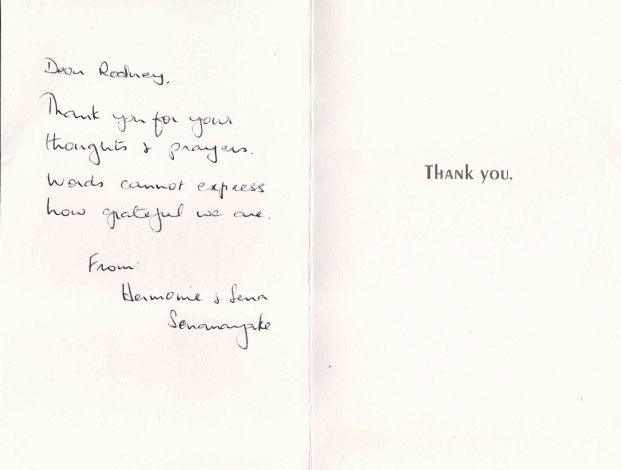 Dear Rodney,
Thank you for your
thoughts & prayers.
Words cannot express
how grateful we are.
From:
Hermonie & Sena
Senanayake
THANK YOU.